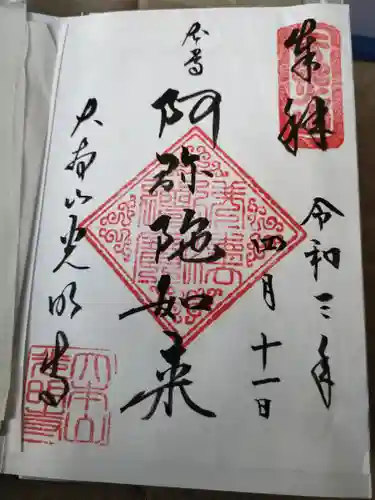 奉拝
令和三年
四月十一日
本尊
阿弥陀如来
大本山光明寺